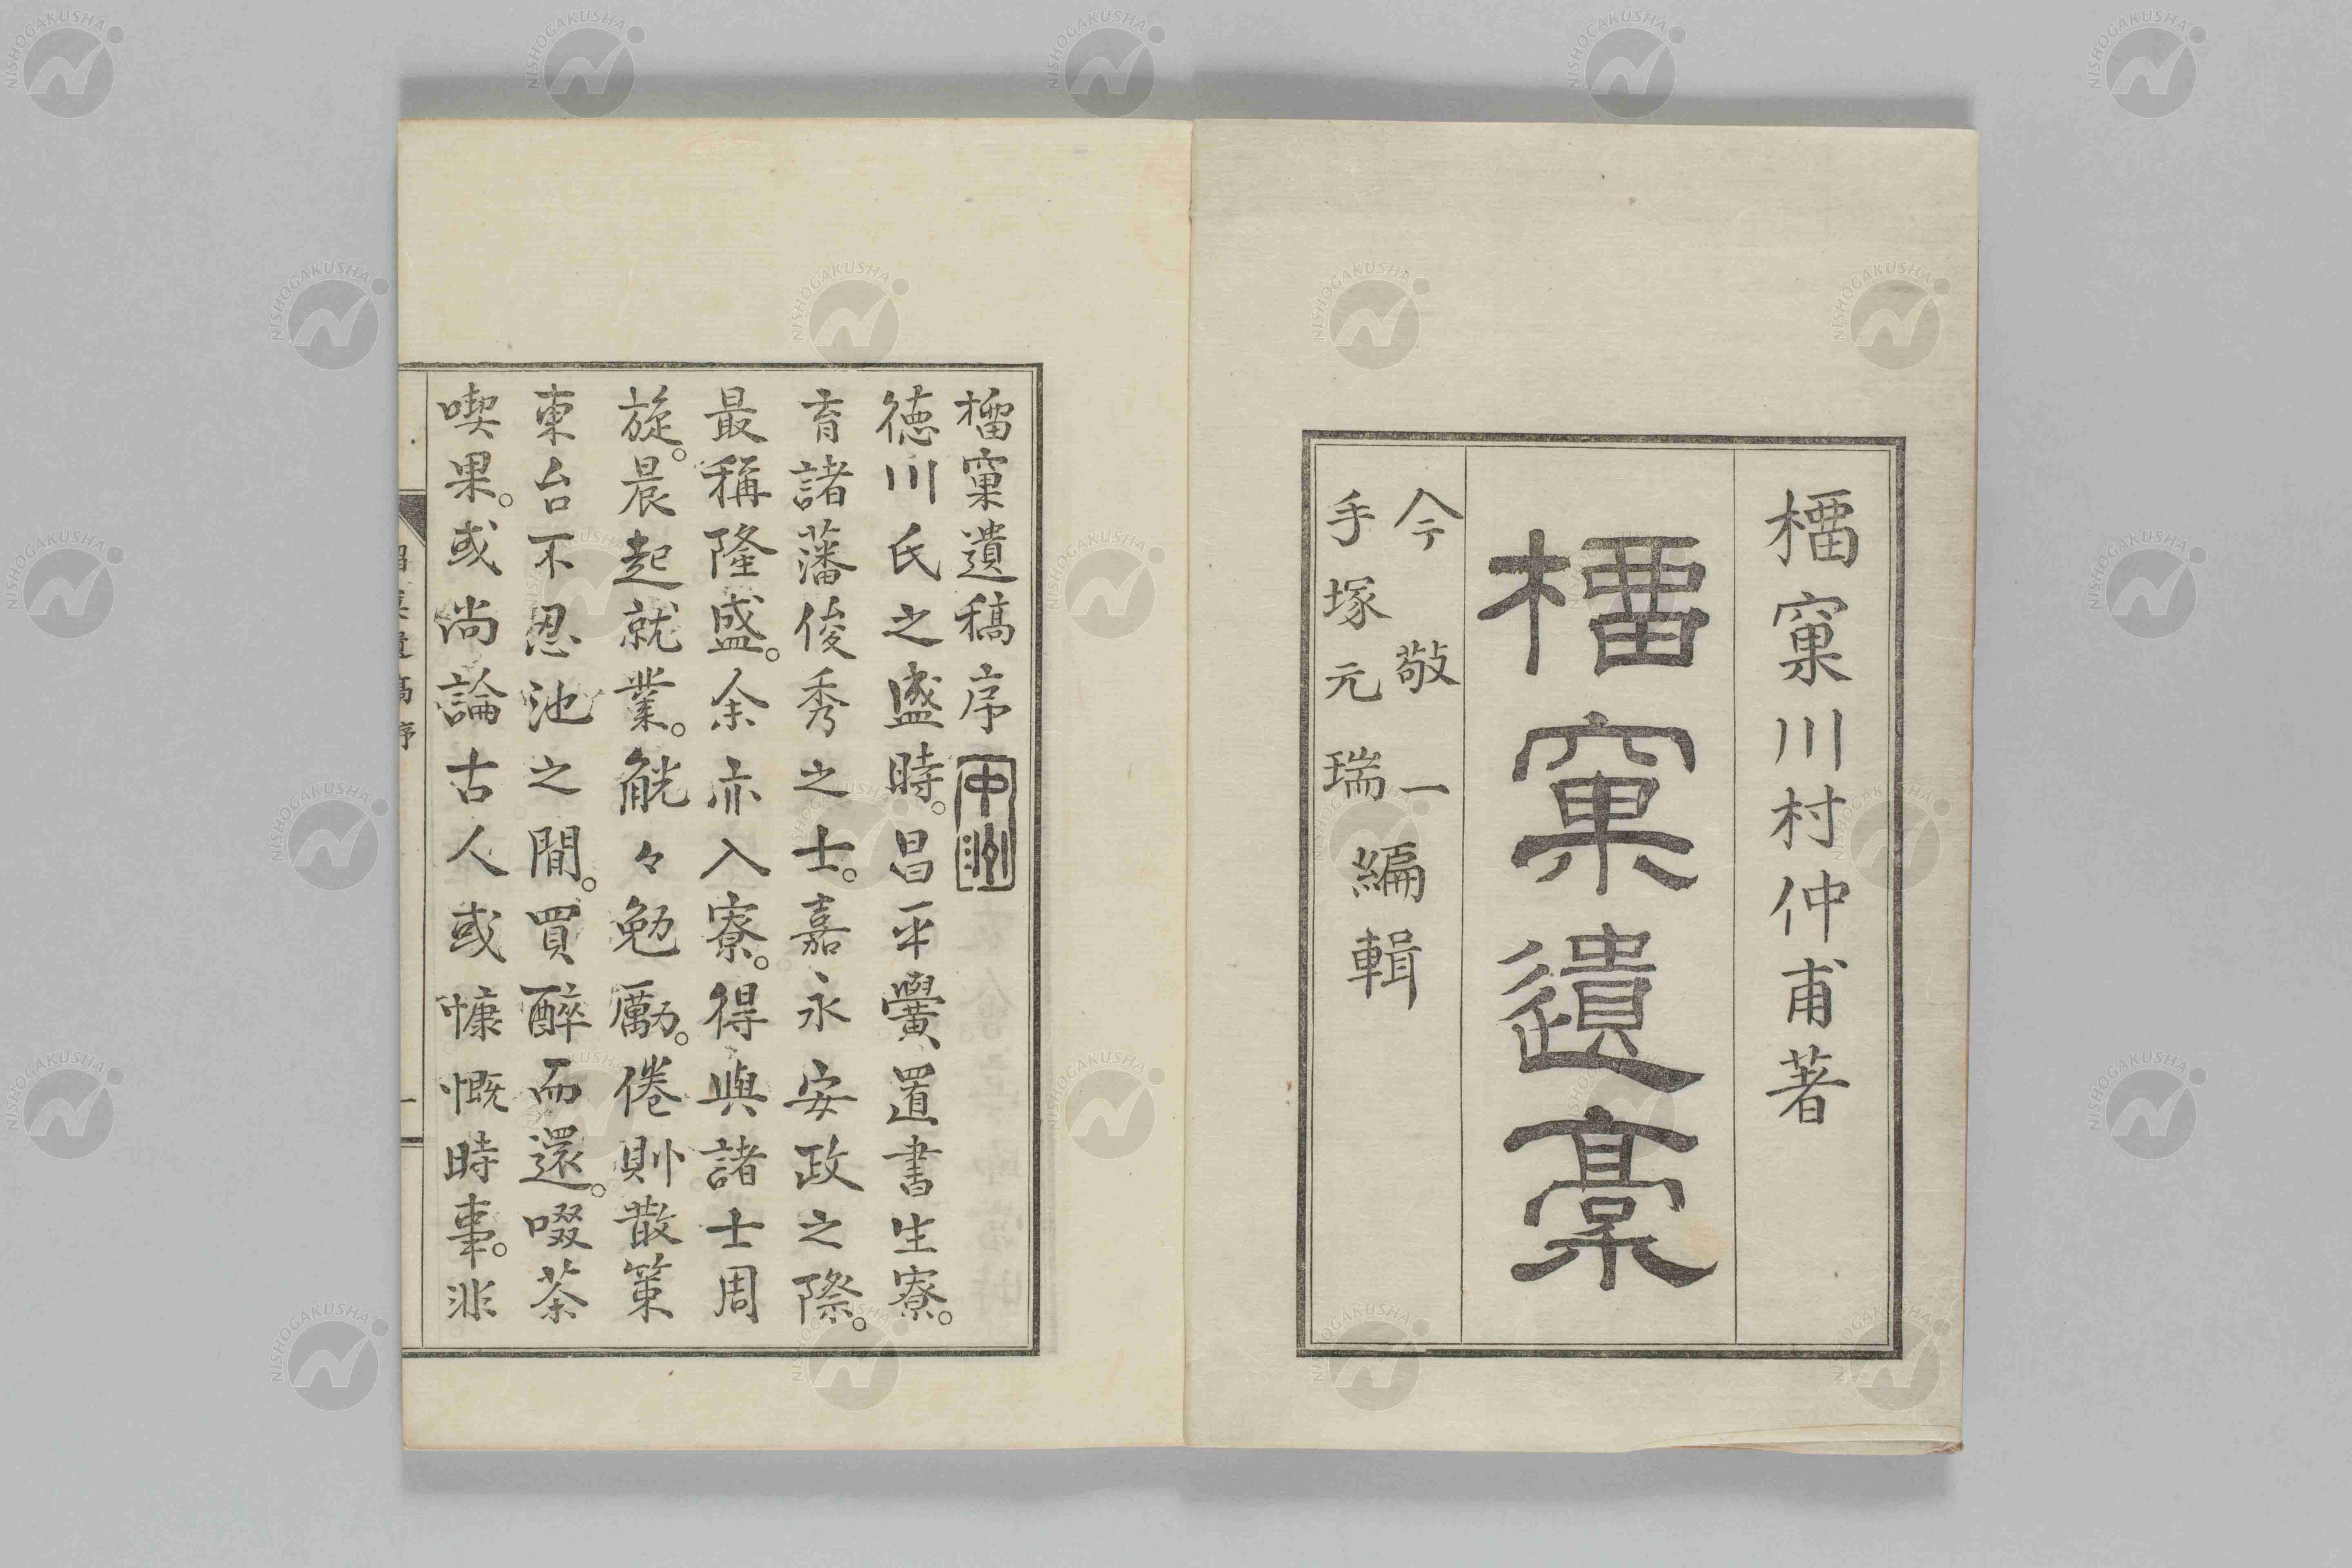 橊窠川村仲甫著
橊窠遺稾
今敬一
手塚元瑞
編輯
榴窠遺稿序 中洲
徳川氏之盛時。昌平黌置書生寮。
育諸藩俊秀之士。嘉永安政之際。
最稱隆盛。余亦入寮。得與諸士周
旋。晨起就業。觥々勉勵。倦則散策
東台不忍池之間。買醉而還。啜茶
喫果。或尚論古人或慷慨時事。非
NISHOGAKUSHA